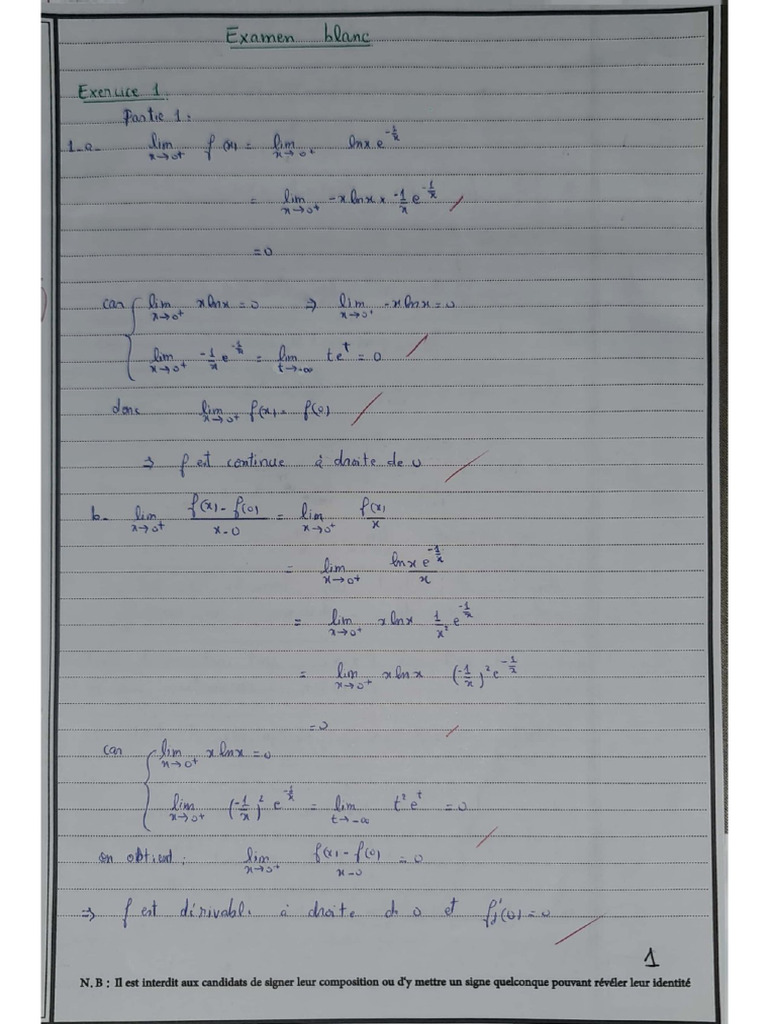 Examen blanc
Exercice 1:
Partie 1:
1-a- lim x→0⁺ f(x) = lim x→0⁺ lnx e^(-1/x)
= lim x→0⁺ -x lnx × -1/x e^(-1/x)
= 0
car { lim x→0⁺ x lnx = 0 ⇒ lim x→0⁺ -x lnx = 0
lim x→0⁺ -1/x e^(-1/x) = lim t→-∞ t e^t = 0
donc lim x→0⁺ f(x) = f(0)
⇒ f est continue à droite de 0
b- lim x→0⁺ (f(x) - f(0))/(x-0) = lim x→0⁺ f(x)/x
= lim x→0⁺ (lnx e^(-1/x))/x
= lim x→0⁺ x lnx 1/x² e^(-1/x)
= lim x→0⁺ x lnx (-1/x)² e^(-1/x)
= 0
car { lim x→0⁺ x lnx = 0
lim x→0⁺ (-1/x)² e^(-1/x) = lim t→-∞ t² e^t = 0
on obtient: lim x→0⁺ (f(x) - f(0))/(x-0) = 0
⇒ f est dérivable à droite de 0 et f'd(0) = 0
1
N. B : Il est interdit aux candidats de signer leur composition ou d'y mettre un signe quelconque pouvant révéler leur identité